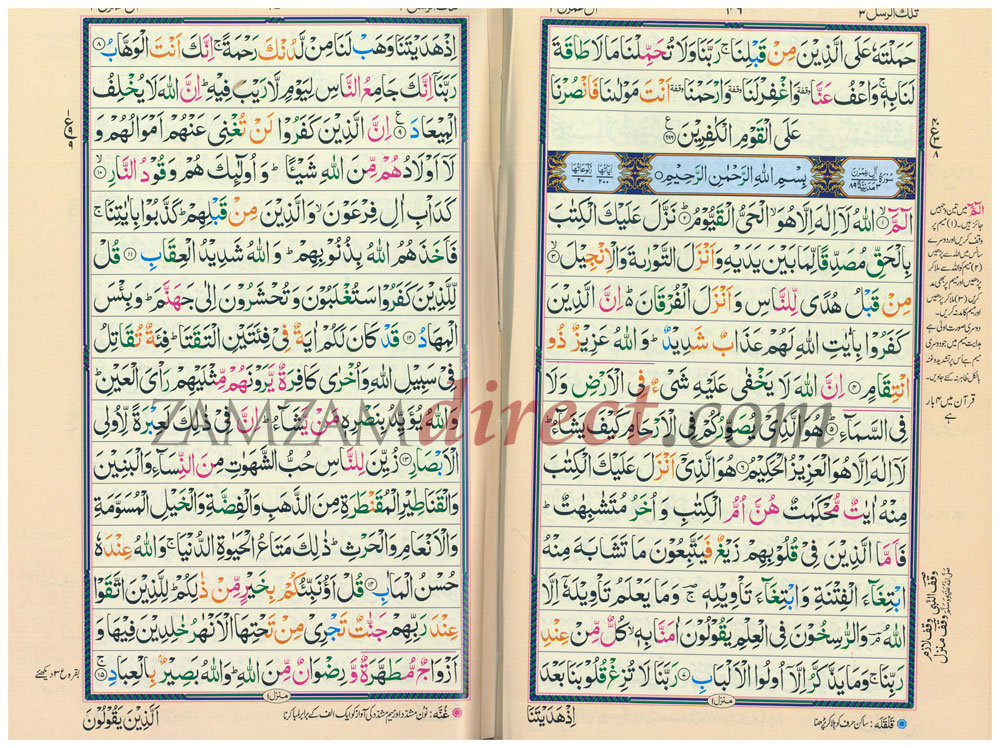 تلك الرسل ٣
١٠٦
حَمَلْتَهٗ عَلَى الَّذِيْنَ مِنْ قَبْلِنَا ۚ رَبَّنَا وَلَا تُحَمِّلْنَا مَا لَا طَاقَةَ
لَنَا بِهٖ ۚ وَاعْفُ عَنَّا ۥوقفة وَاغْفِرْ لَنَا ۥوقفة وَارْحَمْنَا ۥوقفة اَنْتَ مَوْلٰىنَا فَانْصُرْنَا
عَلَى الْقَوْمِ الْكٰفِرِيْنَ ﴿٢٨٦﴾
سُوْرَةُ اٰلِ عِمْرٰنَ ٣ مَدَنِيَّةٌ ٨٩
بِسْمِ اللّٰهِ الرَّحْمٰنِ الرَّحِيْمِ
اٰيَاتُهَا ٢٠٠ رُكُوْعَاتُهَا ٢٠
الٓمّٓ ۙ‏﴿١﴾ اللّٰهُ لَاۤ اِلٰهَ اِلَّا هُوَ ۙ الْحَىُّ الْقَيُّوْمُ ؕ‏﴿٢﴾ نَزَّلَ عَلَيْكَ الْكِتٰبَ
بِالْحَقِّ مُصَدِّقًا لِّمَا بَيْنَ يَدَيْهِ وَاَنْزَلَ التَّوْرٰىةَ وَالْاِنْجِيْلَ ۙ‏﴿٣﴾
مِنْ قَبْلُ هُدًى لِّلنَّاسِ وَاَنْزَلَ الْفُرْقَانَ ؕ اِنَّ الَّذِيْنَ
كَفَرُوْا بِاٰيٰتِ اللّٰهِ لَهُمْ عَذَابٌ شَدِيْدٌ ؕ وَاللّٰهُ عَزِيْزٌ ذُو
انْتِقَامٍ ﴿٤﴾ اِنَّ اللّٰهَ لَا يَخْفٰى عَلَيْهِ شَىْءٌ فِى الْاَرْضِ وَلَا
فِى السَّمَآءِ ؕ‏﴿٥﴾ هُوَ الَّذِىْ يُصَوِّرُكُمْ فِى الْاَرْحَامِ كَيْفَ يَشَآءُ ؕ
لَاۤ اِلٰهَ اِلَّا هُوَ الْعَزِيْزُ الْحَكِيْمُ ﴿٦﴾ هُوَ الَّذِىْۤ اَنْزَلَ عَلَيْكَ الْكِتٰبَ
مِنْهُ اٰيٰتٌ مُّحْكَمٰتٌ هُنَّ اُمُّ الْكِتٰبِ وَاُخَرُ مُتَشٰبِهٰتٌ ؕ
فَاَمَّا الَّذِيْنَ فِىْ قُلُوْبِهِمْ زَيْغٌ فَيَتَّبِعُوْنَ مَا تَشَابَهَ مِنْهُ
ابْتِغَآءَ الْفِتْنَةِ وَابْتِغَآءَ تَاْوِيْلِهٖ ۚ وَمَا يَعْلَمُ تَاْوِيْلَهٗۤ اِلَّا
اللّٰهُ ۘ وَالرّٰسِخُوْنَ فِى الْعِلْمِ يَقُوْلُوْنَ اٰمَنَّا بِهٖ ۙ كُلٌّ مِّنْ عِنْدِ
رَبِّنَا ۚ وَمَا يَذَّكَّرُ اِلَّاۤ اُولُوا الْاَلْبَابِ ﴿٧﴾ رَبَّنَا لَا تُزِغْ قُلُوْبَنَا بَعْدَ
منزل ١
الٓمّٓ میں تین وجہیں
جائز ہیں۔ (١) میم پر
وقف کریں اور دوسرے
سانس میں اللہ سے پڑھیں
(٢) میم کو اللہ سے ملا کر
پڑھیں اور میم پر بھی مد
کریں (٣) ملا کر پڑھیں
اور میم کا مد نہ کریں۔
دوسری صورت اولیٰ ہے
قرآن میں ٣ بار
ہے
وقف النبی صلی اللہ علیہ وسلم
وقف لازم
وقف منزل
قلقلہ: ساکن حرف کو ہلا کر پڑھنا
اِذْ هَدَيْتَنَا
اِذْ هَدَيْتَنَا وَهَبْ لَنَا مِنْ لَّدُنْكَ رَحْمَةً ۚ اِنَّكَ اَنْتَ الْوَهَّابُ ﴿٨﴾
رَبَّنَاۤ اِنَّكَ جَامِعُ النَّاسِ لِيَوْمٍ لَّا رَيْبَ فِيْهِ ؕ اِنَّ اللّٰهَ لَا يُخْلِفُ
الْمِيْعَادَ ﴿٩﴾ اِنَّ الَّذِيْنَ كَفَرُوْا لَنْ تُغْنِىَ عَنْهُمْ اَمْوَالُهُمْ وَ
لَاۤ اَوْلَادُهُمْ مِّنَ اللّٰهِ شَيْـًٔا ؕ وَاُولٰٓئِكَ هُمْ وَقُوْدُ النَّارِ ۙ‏﴿١٠﴾
كَدَاْبِ اٰلِ فِرْعَوْنَ ۙ وَالَّذِيْنَ مِنْ قَبْلِهِمْ ؕ كَذَّبُوْا بِاٰيٰتِنَا ۚ
فَاَخَذَهُمُ اللّٰهُ بِذُنُوْبِهِمْ ؕ وَاللّٰهُ شَدِيْدُ الْعِقَابِ ﴿١١﴾ قُلْ
لِّلَّذِيْنَ كَفَرُوْا سَتُغْلَبُوْنَ وَتُحْشَرُوْنَ اِلٰى جَهَنَّمَ ؕ وَبِئْسَ
الْمِهَادُ ﴿١٢﴾ قَدْ كَانَ لَكُمْ اٰيَةٌ فِىْ فِئَتَيْنِ الْتَقَتَا ؕ فِئَةٌ تُقَاتِلُ
فِىْ سَبِيْلِ اللّٰهِ وَاُخْرٰى كَافِرَةٌ يَّرَوْنَهُمْ مِّثْلَيْهِمْ رَاْىَ الْعَيْنِ ؕ
وَاللّٰهُ يُؤَيِّدُ بِنَصْرِهٖ مَنْ يَّشَآءُ ؕ اِنَّ فِىْ ذٰلِكَ لَعِبْرَةً لِّاُولِى
الْاَبْصَارِ ﴿١٣﴾ زُيِّنَ لِلنَّاسِ حُبُّ الشَّهَوٰتِ مِنَ النِّسَآءِ وَالْبَنِيْنَ
وَالْقَنَاطِيْرِ الْمُقَنْطَرَةِ مِنَ الذَّهَبِ وَالْفِضَّةِ وَالْخَيْلِ الْمُسَوَّمَةِ
وَالْاَنْعَامِ وَالْحَرْثِ ؕ ذٰلِكَ مَتَاعُ الْحَيٰوةِ الدُّنْيَا ۚ وَاللّٰهُ عِنْدَهٗ
حُسْنُ الْمَاٰبِ ﴿١٤﴾ قُلْ اَؤُنَبِّئُكُمْ بِخَيْرٍ مِّنْ ذٰلِكُمْ ؕ لِلَّذِيْنَ اتَّقَوْا
عِنْدَ رَبِّهِمْ جَنّٰتٌ تَجْرِىْ مِنْ تَحْتِهَا الْاَنْهٰرُ خٰلِدِيْنَ فِيْهَا وَ
اَزْوَاجٌ مُّطَهَّرَةٌ وَّرِضْوَانٌ مِّنَ اللّٰهِ ؕ وَاللّٰهُ بَصِيْرٌۢ بِالْعِبَادِ ۚ‏﴿١٥﴾
منزل ١
بقرہ ع ٣ دیکھئے
غنہ: نون مشدد اور میم مشدد کی آواز کو ایک الف کے برابر لمبا کرنا
اَلَّذِيْنَ يَقُوْلُوْنَ
ZAMZAMdirect.com